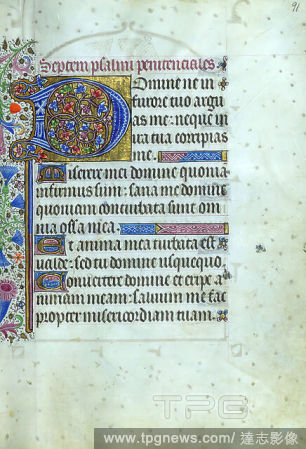 91
Septem psalmi penitenciales
Domine ne in
furore tuo argu
as me: neque in
ira tua corripias
me.
Miserere mei domine quonia
infirmus sum: sana me domine
quoniam conturbata sunt om
nia ossa mea.
Et anima mea turbata est
valde: sed tu domine usquequo.
Convertere domine et eripe a
nimam meam: salvum me fac
propter misericordiam tuam.
TPG
www.tpgnews.com/達志影像